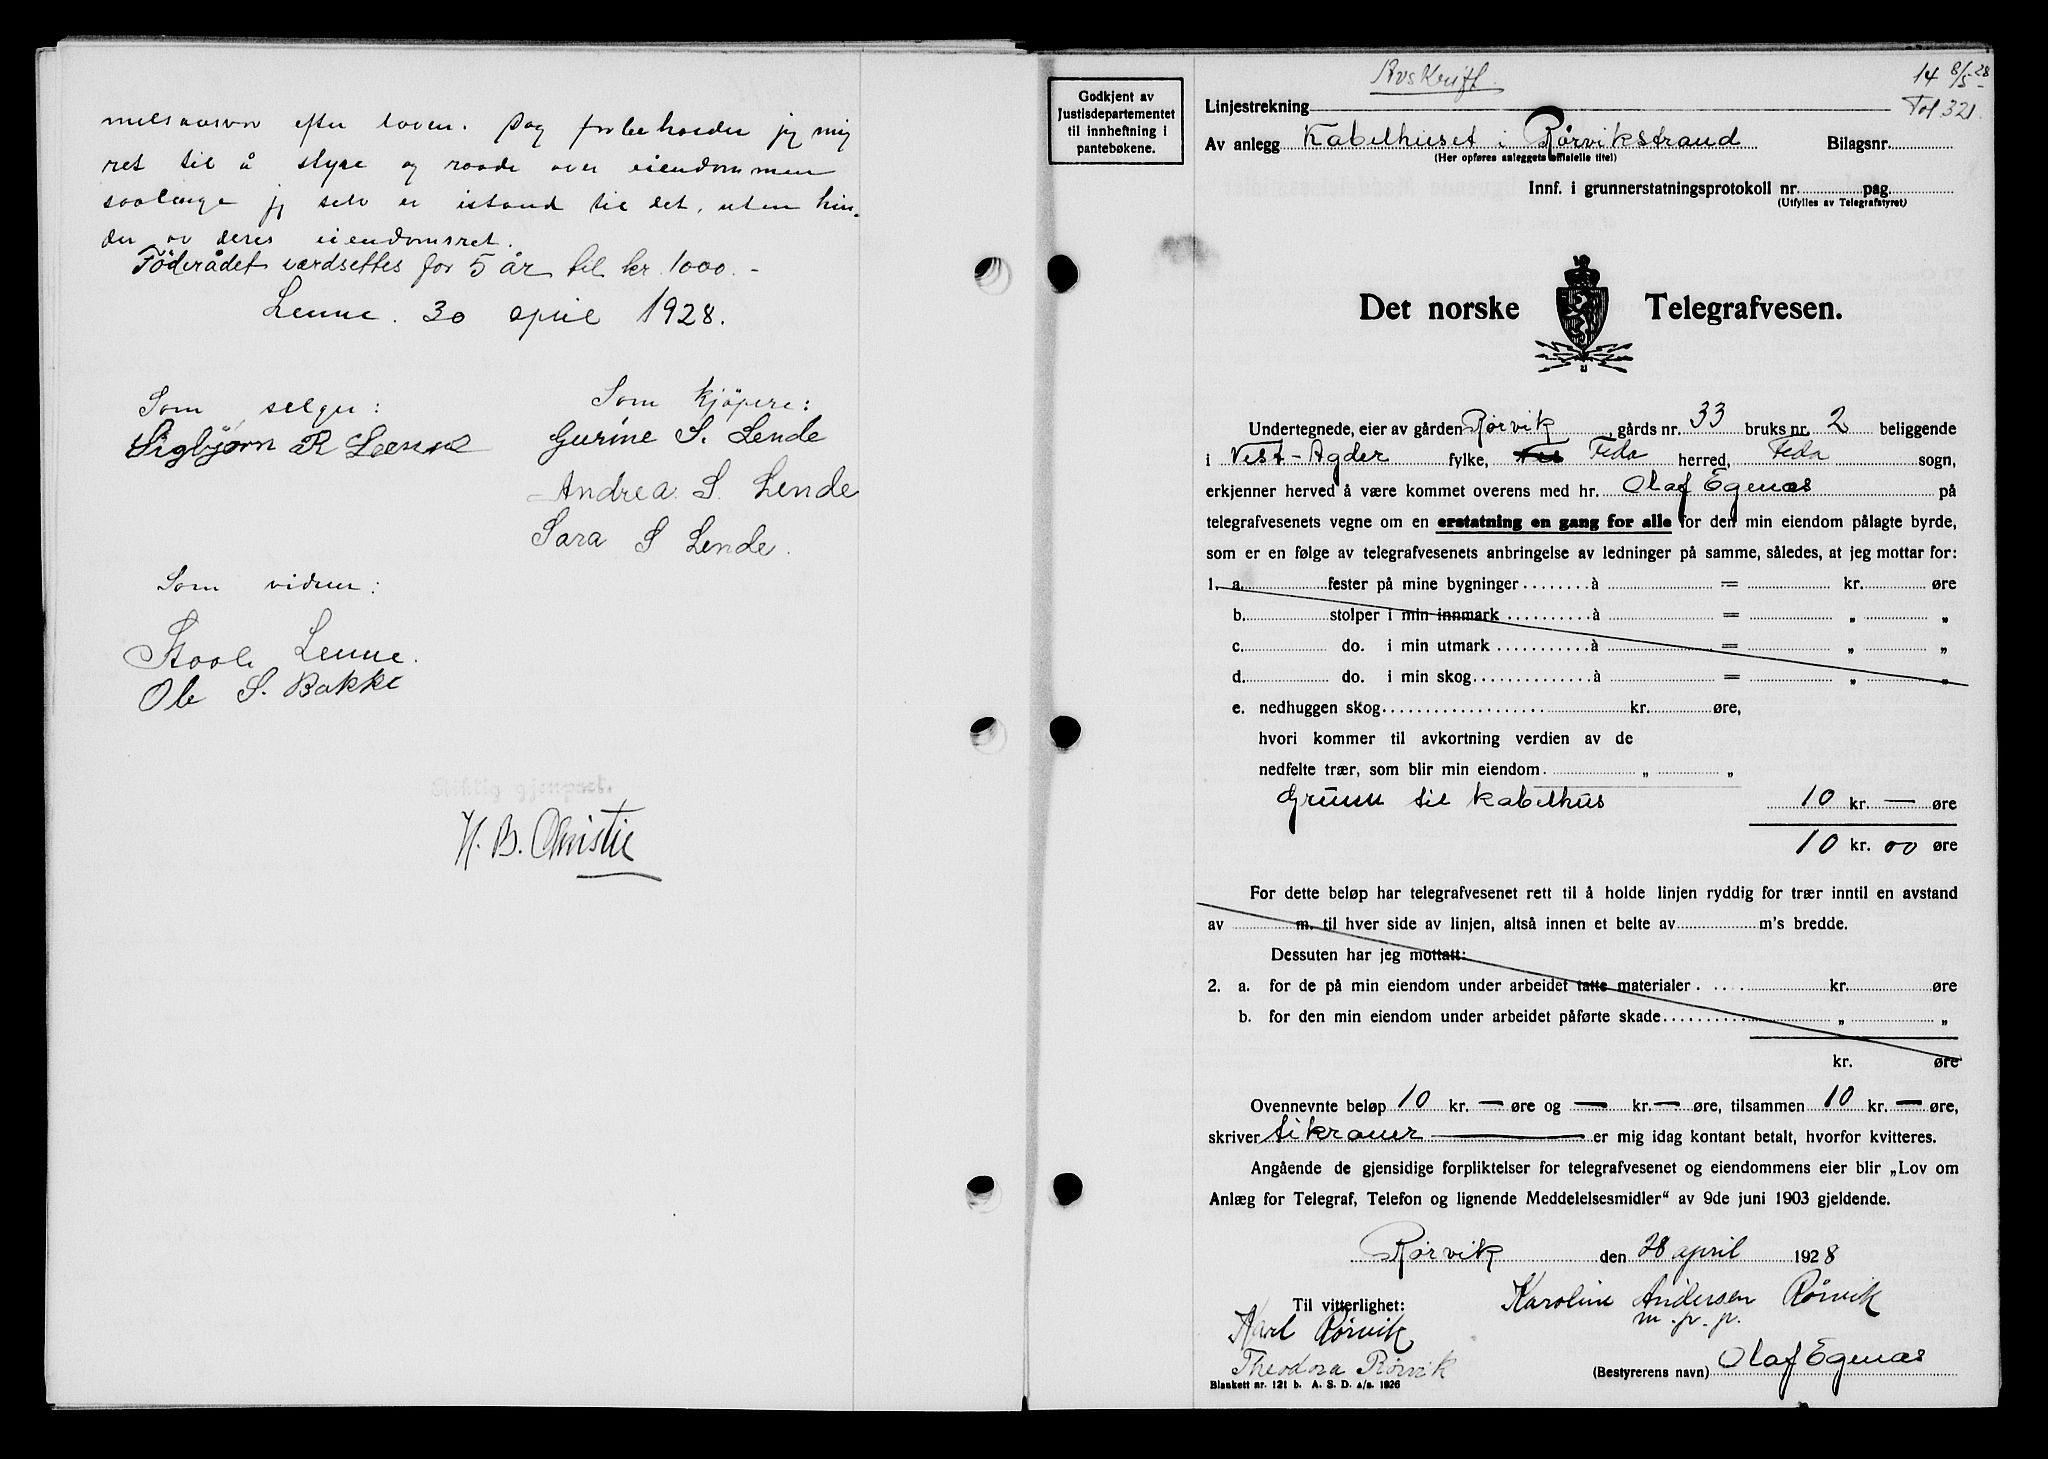 melsaasvn efter loven. Dog forbeholder jeg mig
ret til å styre og raade over eiendommen
saalenge jeg selv er istand til det, uten hin-
der av deres eiendomsret.
Föderådet værdsettes for 5 år til kr. 1000.-
Lenne. 30 april 1928.
Som selger:
Som kjöpere:
Sigbjørn R Lenne
Gurine S. Lende
Andrea S. Lende
Sara S Lende.
Som vidner:
Lenne.
Ole S. Bakke
Riktig gjenpart.
H. B. Christie
Godkjent av
Justisdepartementet
til innheftning i
pantebøkene.
Avskrift.
14 8/5-28
Linjestrekning
Fol 321.
Av anlegg Kabelhuset i Rørvikstrand Bilagsnr.
(Her opføres anleggets offisielle titel)
Innf. i grunnerstatningsprotokoll nr. pag.
(Utfylles av Telegrafstyret)
Det norske Telegrafvesen.
Undertegnede, eier av gården Rørvik gårds nr. 33 bruks nr. 2 beliggende
i Vest-Agder fylke, Feda herred, Feda sogn,
erkjenner herved å være kommet overens med hr. Olaf Egenæs på
telegrafvesenets vegne om en erstatning en gang for alle for den min eiendom pålagte byrde,
som er en følge av telegrafvesenets anbringelse av ledninger på samme, således, at jeg mottar for:
1. a. fester på mine bygninger à = kr. øre
b. stolper i min innmark à = „ „
c. do. i min utmark à = „ „
d. do. i min skog à = „ „
e. nedhuggen skog kr. øre,
hvori kommer til avkortning verdien av de
nedfelte trær, som blir min eiendom. „ „
Grunn til kabelhus 10 kr. — øre
10 kr. 00 øre
For dette beløp har telegrafvesenet rett til å holde linjen ryddig for trær inntil en avstand
av m. til hver side av linjen, altså innen et belte av m's bredde.
Dessuten har jeg mottatt:
2. a. for de på min eiendom under arbeidet tatte materialer kr. øre
b. for den min eiendom under arbeidet påførte skade „ „
kr. øre
Ovennevnte beløp 10 kr. — øre og — kr. — øre, tilsammen 10 kr. — øre,
skriver tikroner er mig idag kontant betalt, hvorfor kvitteres.
Angående de gjensidige forpliktelser for telegrafvesenet og eiendommens eier blir „Lov om
Anlæg for Telegraf, Telefon og lignende Meddelelsesmidler“ av 9de juni 1903 gjeldende.
Rørvik den 28 april 1928
Til vitterlighet:
Karoline Andersen Rørvik
m. p. p.
Karl Rørvik
Theodora Rørvik
(Bestyrerens navn) Olaf Egenæs
Blankett nr. 121 b. A. S. D. A/s. 1926